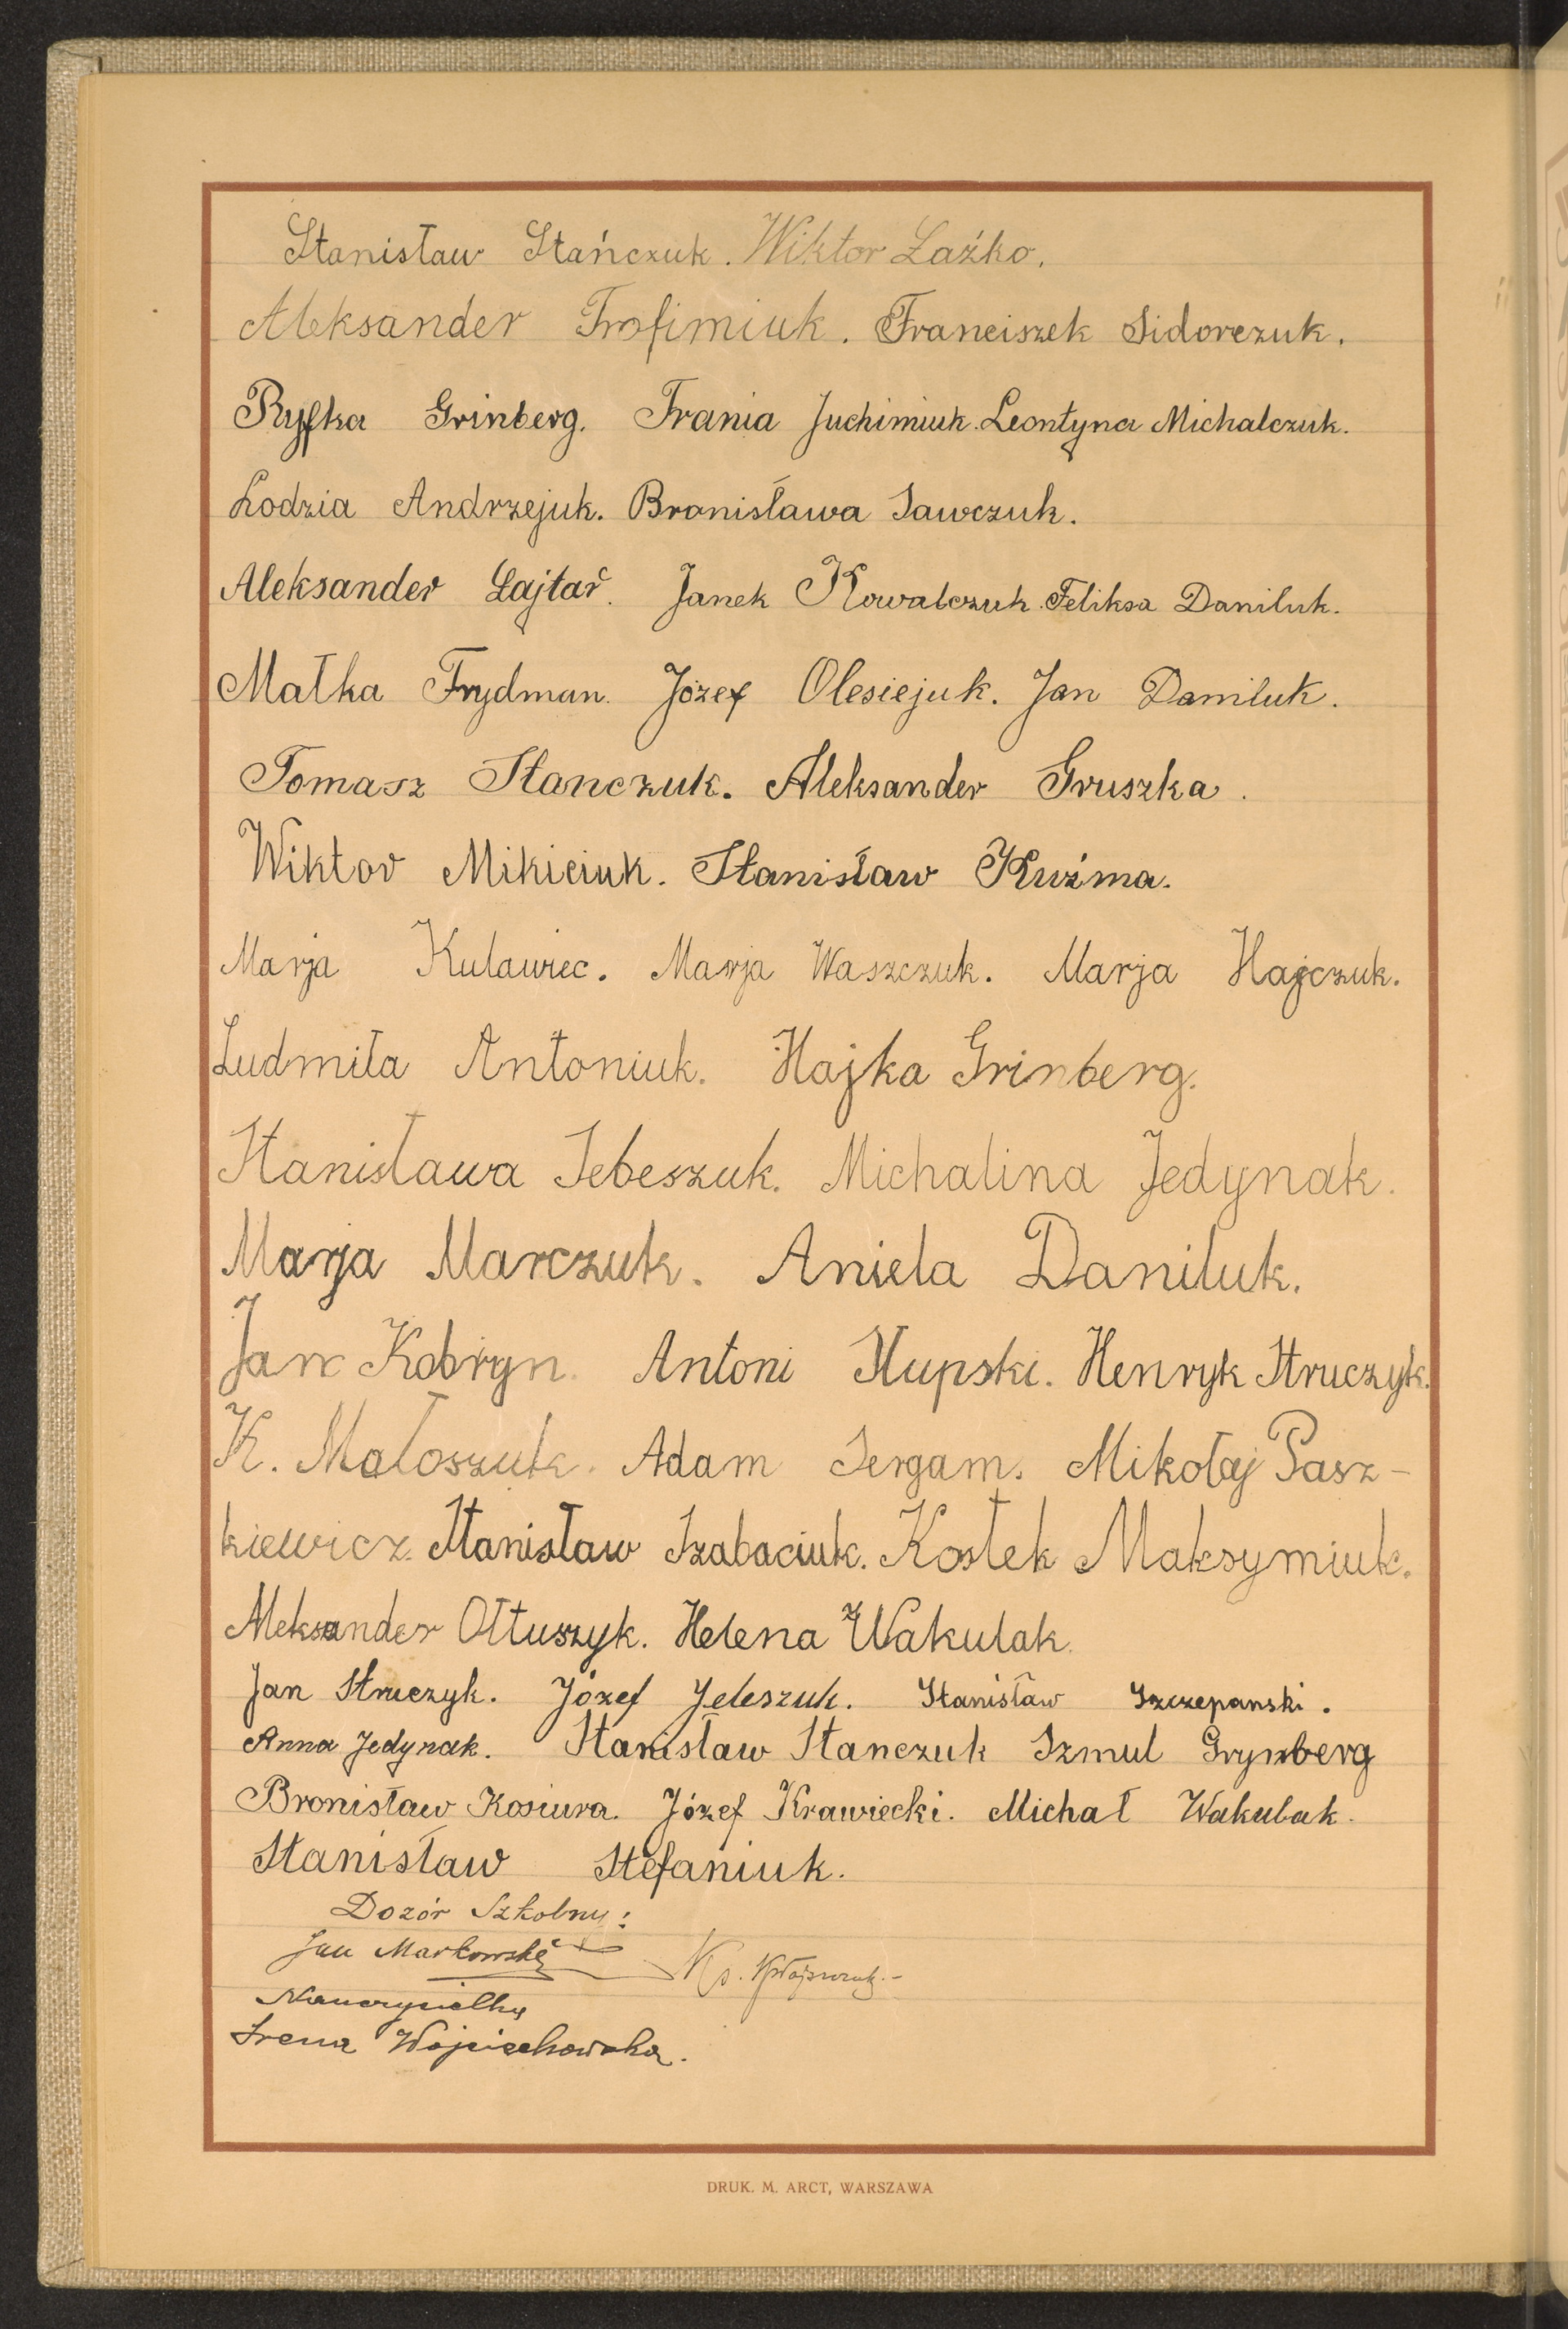 Stanisław Stańczuk. Wiktor Łaźko.
Aleksander Trofimiuk. Franciszek Sidorczuk.
Ryfka Grinberg. Frania Juchimiuk. Leontyna Michalczuk.
Lodzia Andrzejuk. Bronisława Sawczuk.
Aleksander Łajtar. Janek Kowalczuk. Feliksa Daniluk.
Małka Frydman. Józef Olesiejuk. Jan Daniluk.
Tomasz Stanczuk. Aleksander Gruszka.
Wiktor Mikiciuk. Stanisław Kuźma.
Marja Kulawiec. Marja Waszczuk. Marja Hajczuk.
Ludmiła Antoniuk. Hajka Grinberg.
Stanisława Sebeszuk. Michalina Jedynak.
Marja Marczuk. Aniela Daniluk.
Jan Kobryn. Antoni Słupski. Henryk Struczyk.
K. Małoszuk. Adam Sergam. Mikołaj Pasz-
kiewicz. Stanisław Szabaciuk. Kostek Maksymiuk.
Aleksander Ołtuszyk. Helena Wakulak.
Jan Struczyk. Józef Jeleszuk. Stanisław Szczepanski.
Anna Jedynak. Stanisław Stanczuk Szmul Grynberg
Bronisław Kosiura. Józef Krawiecki. Michał Wakulak.
Stanisław Stefaniuk.
Dozór Szkolny:
Jan Markowski
Ks.
Nauczycielka
Irena Wojciechowska.
DRUK. M. ARCT, WARSZAWA